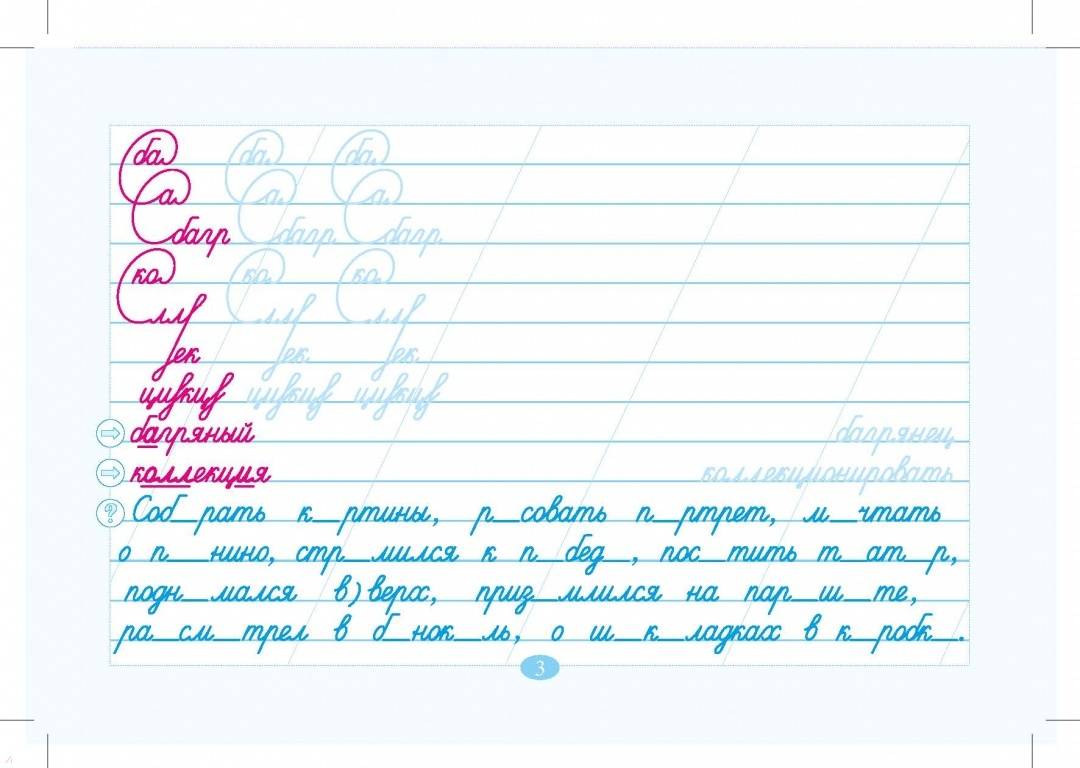 ба ба ба
а а а
багр багр багр
ко ко ко
лл лл лл
ек ек ек
циякция циякция циякция
багряный багрянец
коллекция коллекционировать
? Соб_рать к_ртины, р_совать п_ртрет, м_чтать
о п_нино, стр_мился к п_бед_, пос_тить т_ат_р,
подн_мался в)верх, приз_млился на пар_ш_те,
ра_см_трел в б_нок_ль, о ш_к_ладках в к_робк_.
3